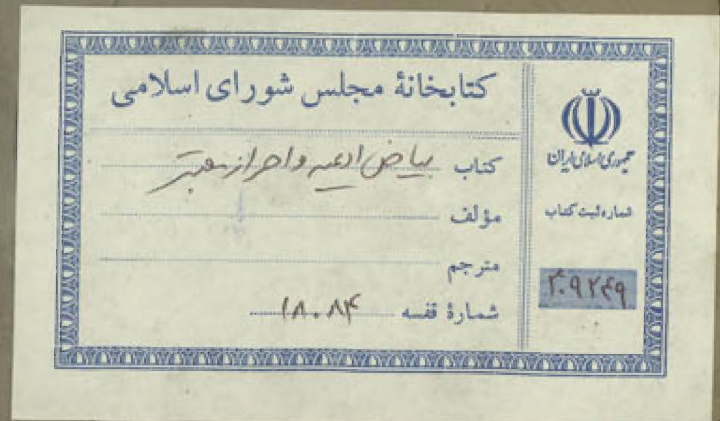 کتابخانهٔ مجلس شورای اسلامی
کتاب بیاض ادعیه و احراز معتبر
مؤلف
مترجم
شمارهٔ قفسه ۱۸۰۸۴
جمهوری اسلامی ایران
شماره ثبت کتاب
۴۰۹۲۴۹